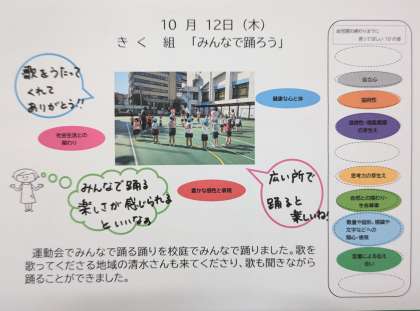 10 月 12日（木）
きく 組 「みんなで踊ろう」
歌をうたって
くれて
ありがとう!!
健康な心と体
社会生活との
関わり
みんなで踊る
楽しさが感じられる
といいなぁ
豊かな感性と表現
広い所で
踊ると
楽しいね!
運動会でみんなで踊る踊りを校庭でみんなで踊りました。歌を
歌ってくださる地域の清水さんも来てくださり、歌も聞きながら
踊ることができました。
自立心
協同性
道徳性・規範意識
の芽生え
思考力の芽生え
自然との関わり・
生命尊重
数量や図形、標識や
文字などへの
関心・感覚
言葉による伝え
合い